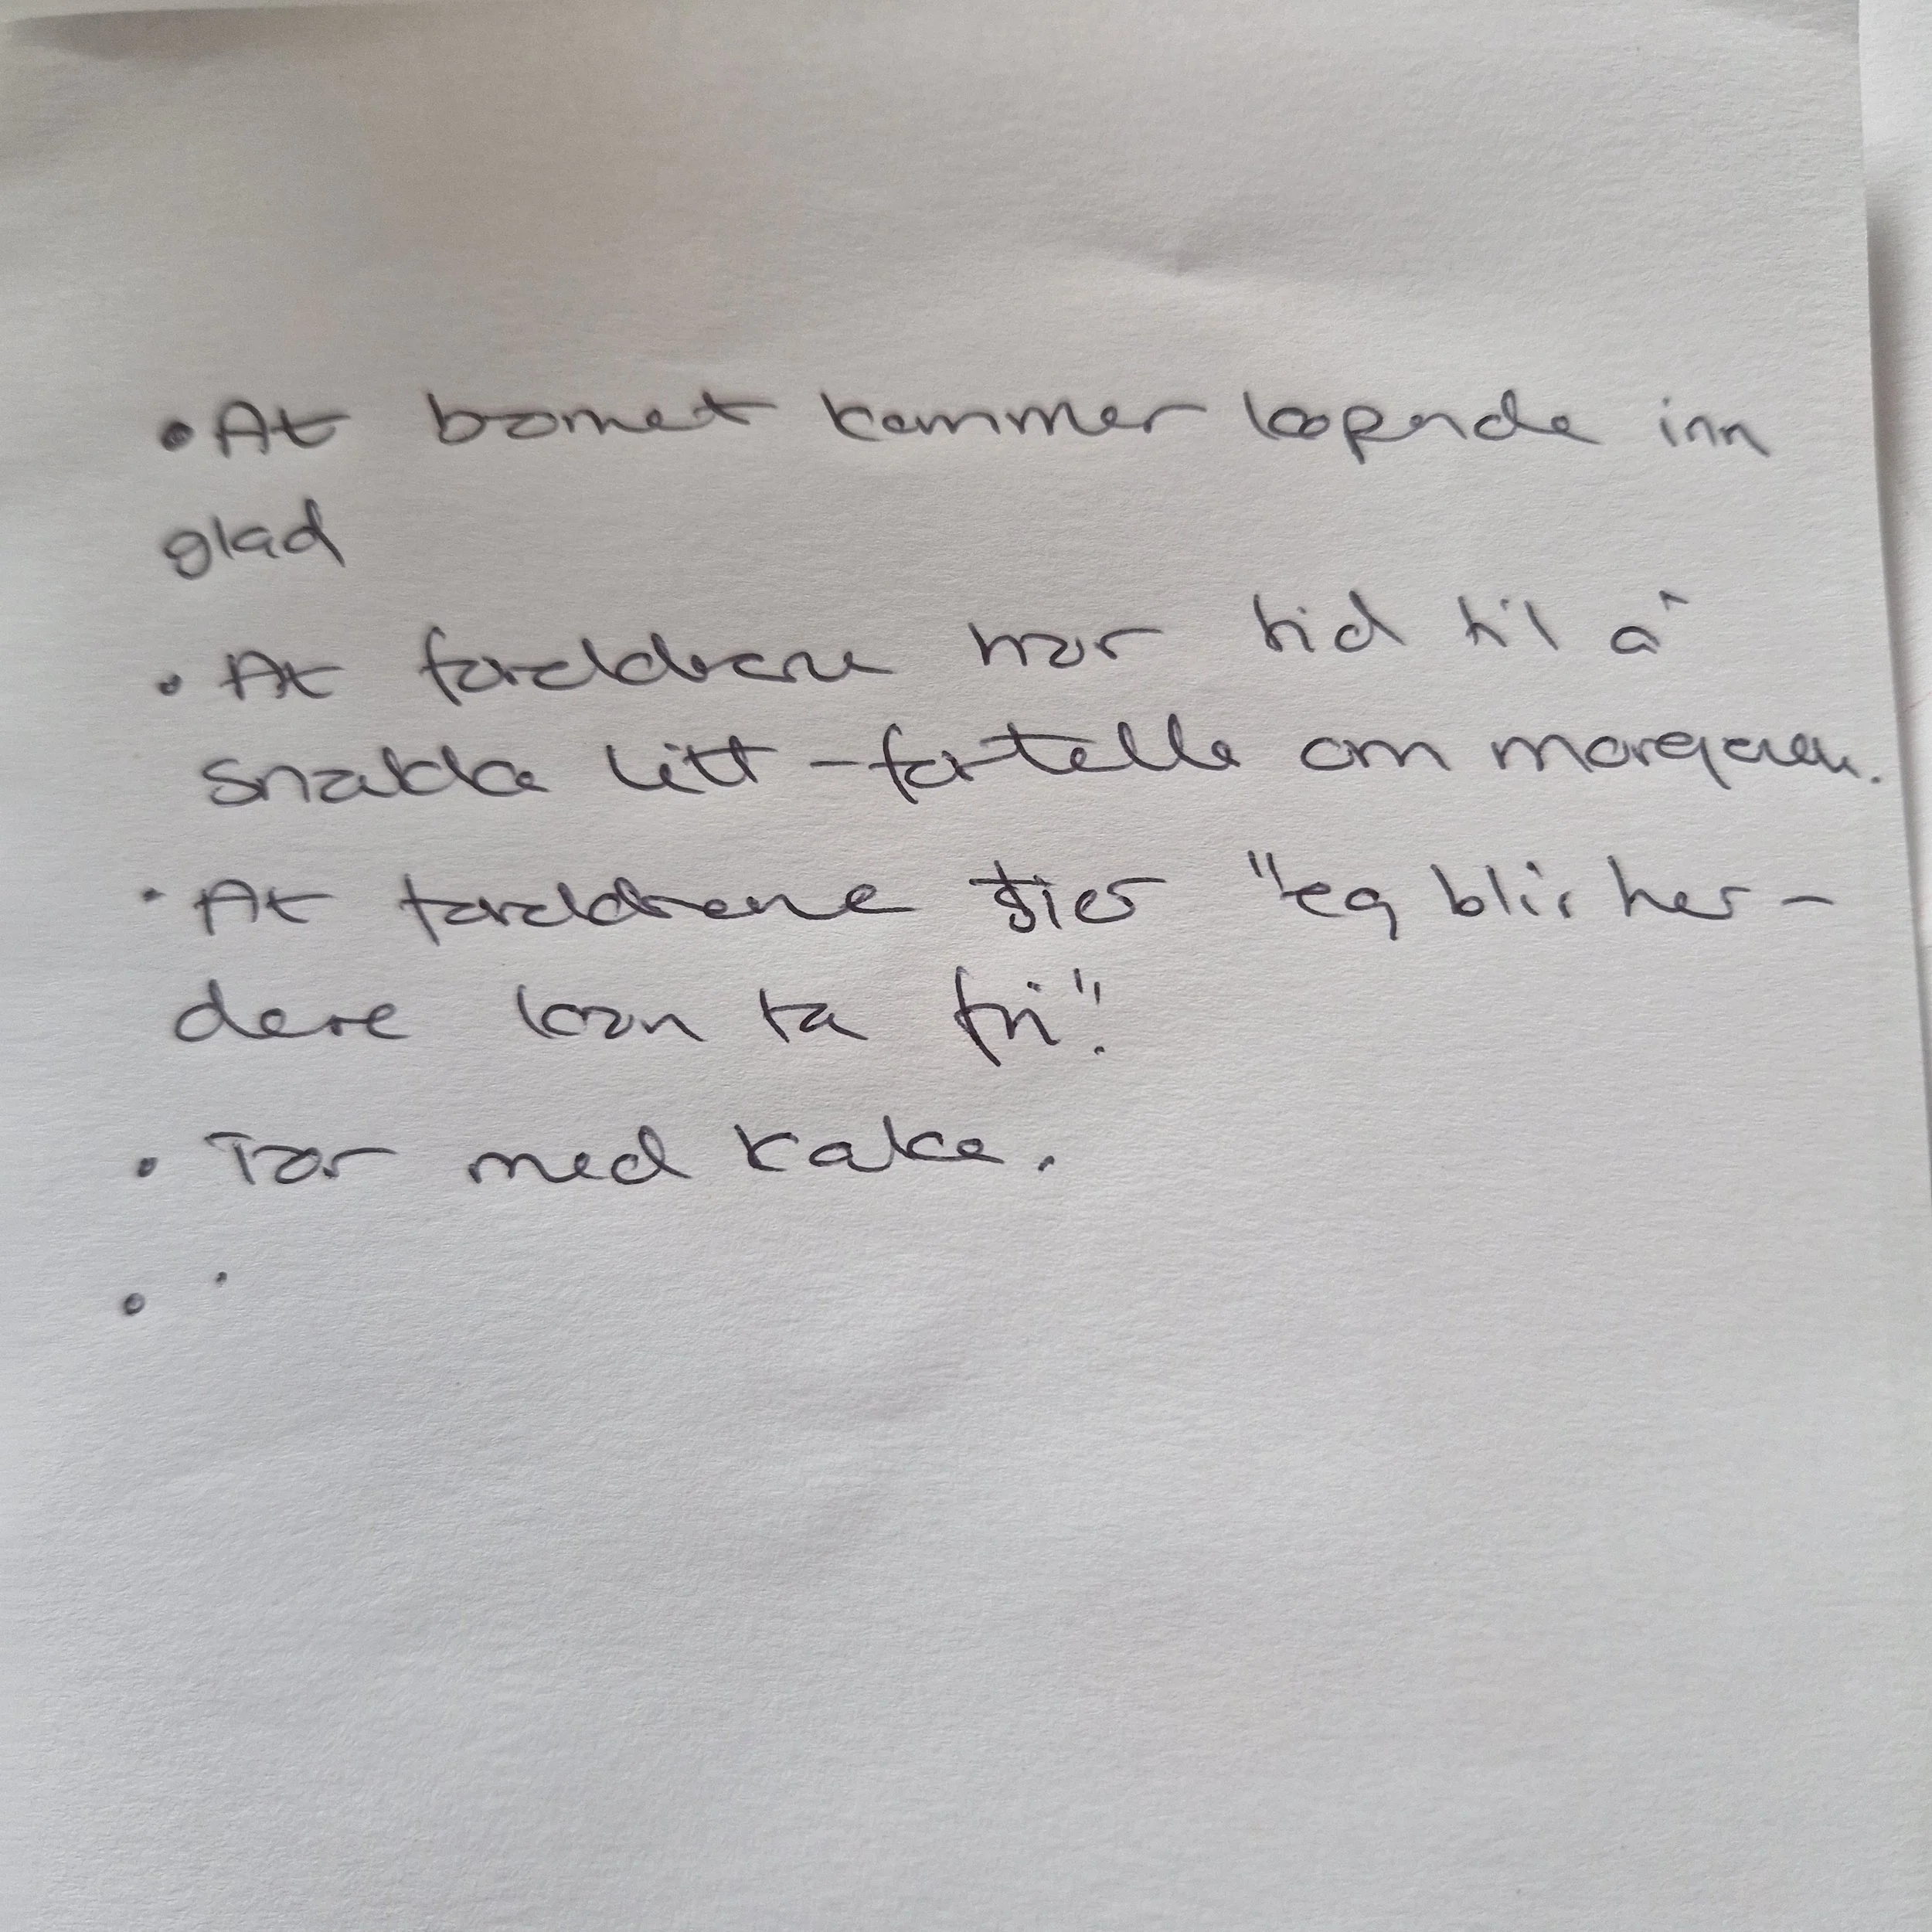 • At barnet kommer løpende inn
glad
• At foreldrene har tid til å
snakke litt - fortelle om morgenen.
• At foreldrene sier "eg blir her -
dere kan ta fri".
• Tar med kake.
•